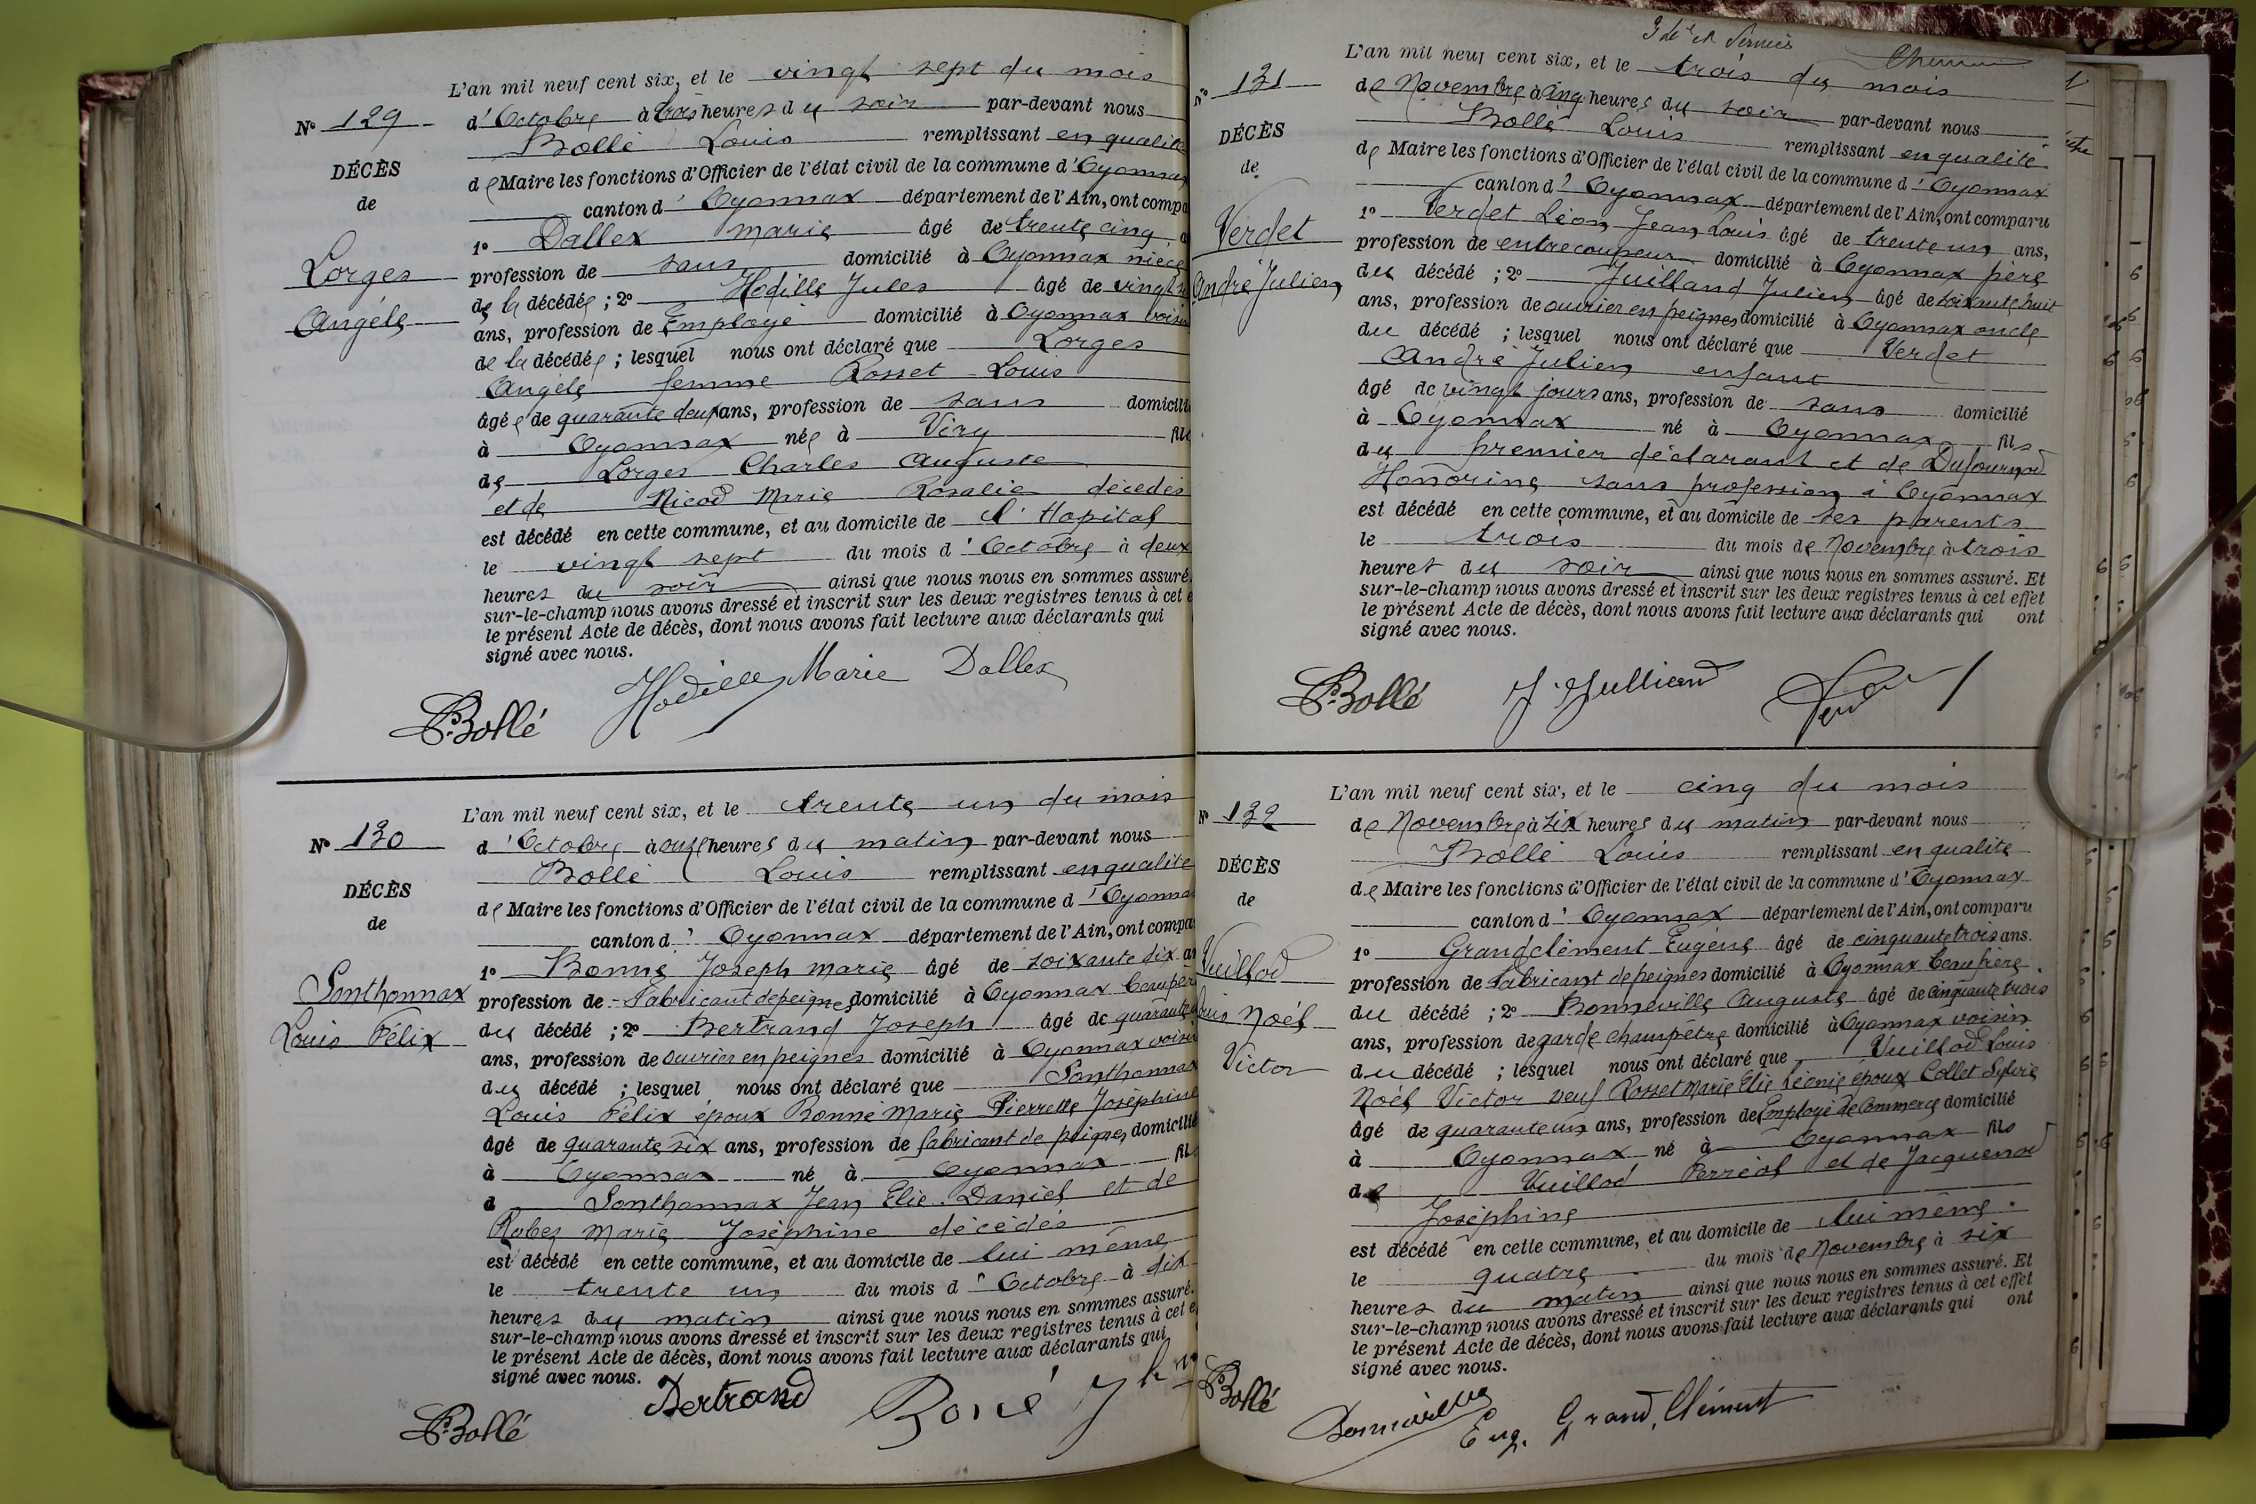 L'an mil neuf cent six, et le vingt sept du mois
Nº 129
d'Octobre à trois heures du soir par-devant nous
Bollé Louis remplissant en qualité
DÉCÈS
de Maire les fonctions d'Officier de l'état civil de la commune d'Oyonnax
de
canton d'Oyonnax département de l'Ain, ont compa
1º Dallex Marie âgé de trente cinq
Lorges
profession de sans domicilié à Oyonnax nièce
de la décédée ; 2º Hodille Jules âgé de vingt
Angèle
ans, profession de Employé domicilié à Oyonnax voisin
de la décédée ; lesquel nous ont déclaré que Lorges
Angèle femme Rosset Louis
âgée de quarante deux ans, profession de sans domicilié
à Oyonnax née à Viry fils
de Lorges Charles Auguste
et de Nicod Marie Rosalie décédés
est décédé en cette commune, et au domicile de l'Hopital
le vingt sept du mois d'Octobre à deux
heures du soir ainsi que nous nous en sommes assuré.
sur-le-champ nous avons dressé et inscrit sur les deux registres tenus à cet e
le présent Acte de décès, dont nous avons fait lecture aux déclarants qui
signé avec nous.
Hodille Marie Dallex
Bollé
L'an mil neuf cent six, et le trente un du mois
Nº 130
d'Octobre à onze heures du matin par-devant nous
Bollé Louis remplissant en qualité
DÉCÈS
de Maire les fonctions d'Officier de l'état civil de la commune d'Oyonnax
de
canton d'Oyonnax département de l'Ain, ont compa
1º Bonné Joseph Marie âgé de soixante dix an
Sonthonnax
profession de Fabricant de peignes domicilié à Oyonnax beaupère
Louis Félix
du décédé ; 2º Bertrand Joseph âgé de quarante
ans, profession de ouvrier en peignes domicilié à Oyonnax voisin
du décédé ; lesquel nous ont déclaré que Sonthonnax
Louis Félix époux Bonné Marie Pierrette Joséphine
âgé de quarante six ans, profession de fabricant de peignes domicilié
à Oyonnax né à Oyonnax fils
d Sonthonnax Jean Elie Daniel et de
Robez Marie Joséphine décédés
est décédé en cette commune, et au domicile de lui même
le trente un du mois d'Octobre à dix
heures du matin ainsi que nous nous en sommes assuré.
sur-le-champ nous avons dressé et inscrit sur les deux registres tenus à cet e
le présent Acte de décès, dont nous avons fait lecture aux déclarants qui
signé avec nous.
Bertrand
Boné J
Bollé
L'an mil neuf cent six, et le trois du mois
Nº 131
de Novembre à cinq heures du soir par-devant nous
Bollé Louis remplissant en qualité
DÉCÈS
de Maire les fonctions d'Officier de l'état civil de la commune d'Oyonnax
de
canton d'Oyonnax département de l'Ain, ont comparu
1º Verdet Léon Jean Louis âgé de trente un ans,
Verdet
profession de entrecoupeur domicilié à Oyonnax père
André Julien
du décédé ; 2º Juilland Julien âgé de soixante huit
ans, profession de ouvrier en peignes domicilié à Oyonnax oncle
du décédé ; lesquel nous ont déclaré que Verdet
André Julien enfant
âgé de vingt jours ans, profession de sans domicilié
à Oyonnax né à Oyonnax fils
du premier déclarant et de Dufournod
Honorine sans profession à Oyonnax
est décédé en cette commune, et au domicile de ses parents
le trois du mois de Novembre à trois
heures du soir ainsi que nous nous en sommes assuré. Et
sur-le-champ nous avons dressé et inscrit sur les deux registres tenus à cet effet
le présent Acte de décès, dont nous avons fait lecture aux déclarants qui ont
signé avec nous.
Bollé J. Julliand
L'an mil neuf cent six, et le cinq du mois
Nº 132
de Novembre à six heures du matin par-devant nous
Bollé Louis remplissant en qualité
DÉCÈS
de Maire les fonctions d'Officier de l'état civil de la commune d'Oyonnax
de
canton d'Oyonnax département de l'Ain, ont comparu
1º Grandclément Eugène âgé de cinquante trois ans.
Vuillod
profession de fabricant de peignes domicilié à Oyonnax beau frère
Louis Noël
du décédé ; 2º Bonneville Auguste âgé de cinquante trois
ans, profession de garde champêtre domicilié à Oyonnax voisin
Victor
du décédé ; lesquel nous ont déclaré que Vuillod Louis
Noël Victor veuf Rosset Marie Elie Léonie époux Collet Sylvie
âgé de quarante un ans, profession de Employé de Commerce domicilié
à Oyonnax né à Oyonnax fils
de Vuillod Perréal et de Jacquenod
Joséphine
est décédé en cette commune, et au domicile de lui même
le quatre du mois de Novembre à six
heures du matin ainsi que nous nous en sommes assuré. Et
sur-le-champ nous avons dressé et inscrit sur les deux registres tenus à cet effet
le présent Acte de décès, dont nous avons fait lecture aux déclarants qui ont
signé avec nous.
Bollé
Bonneville
Eug. Grand,Clément